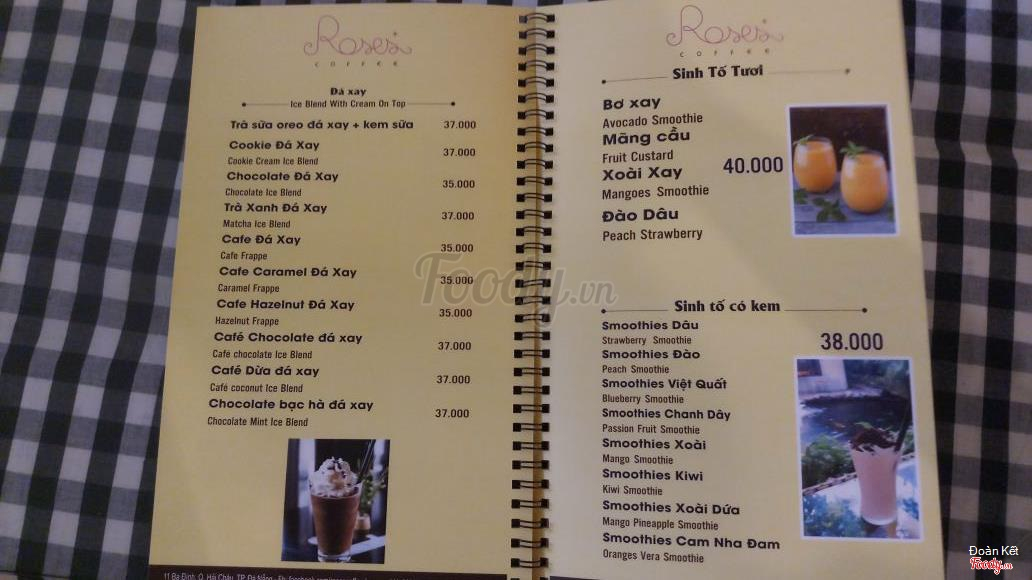 Roses
COFFEE
Đá xay
Ice Blend With Cream On Top
Trà sữa oreo đá xay + kem sữa 37.000
Cookie Đá Xay
Cookie Cream Ice Blend 37.000
Chocolate Đá Xay
Chocolate Ice Blend 35.000
Trà Xanh Đá Xay
Matcha Ice Blend 37.000
Cafe Đá Xay
Cafe Frappe 35.000
Cafe Caramel Đá Xay
Caramel Frappe 35.000
Cafe Hazelnut Đá Xay
Hazelnut Frappe 35.000
Café Chocolate đá xay
Café chocolate Ice Blend 37.000
Café Dừa đá xay
Café coconut Ice Blend 37.000
Chocolate bạc hà đá xay
Chocolate Mint Ice Blend 37.000
11 Ba Đình, Q. Hải Châu, TP. Đà Nẵng
Roses
COFFEE
Sinh Tố Tươi
Bơ xay
Avocado Smoothie
Mãng cầu
Fruit Custard
40.000
Xoài Xay
Mangoes Smoothie
Đào Dâu
Peach Strawberry
Sinh tố có kem
Smoothies Dâu
Strawberry Smoothie
38.000
Smoothies Đào
Peach Smoothie
Smoothies Việt Quất
Blueberry Smoothie
Smoothies Chanh Dây
Passion Fruit Smoothie
Smoothies Xoài
Mango Smoothie
Smoothies Kiwi
Kiwi Smoothie
Smoothies Xoài Dứa
Mango Pineapple Smoothie
Smoothies Cam Nha Đam
Oranges Vera Smoothie
Foody.vn
Đoàn Kết
Foody.vn